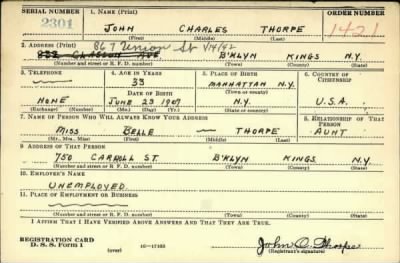 SERIAL NUMBER 1. Name (Print) ORDER NUMBER
2301 JOHN CHARLES THORPE 1421
(First) (Middle) (Last)
2. Address (Print) 867 Union St 1/14/42
AVE B'KLYN KINGS N.Y.
(Number and street or R. F. D. number) (Town) (County) (State)
3. Telephone 4. Age in Years 5. Place of Birth 6. Country of Citizenship
33 MANHATTAN N.Y.
Date of Birth (Town or county)
NONE JUNE 23 1907 N.Y. U.S.A.
(Exchange) (Number) (Mo.) (Day) (Yr.) (State or country)
7. Name of Person Who Will Always Know Your Address 8. Relationship of That Person
MISS BELLE — THORPE AUNT
(Mr., Mrs., Miss) (First) (Middle) (Last)
9. Address of That Person
750 CARROLL ST. B'KLYN KINGS N.Y.
(Number and street or R. F. D. number) (Town) (County) (State)
10. Employer's Name
UNEMPLOYED.
11. Place of Employment or Business
(Number and street or R. F. D. number) (Town) (County) (State)
I Affirm That I Have Verified Above Answers and That They Are True.
REGISTRATION CARD
D. S. S. Form 1 (over) 16—17105 John C. Thorpe
(Registrant's signature)